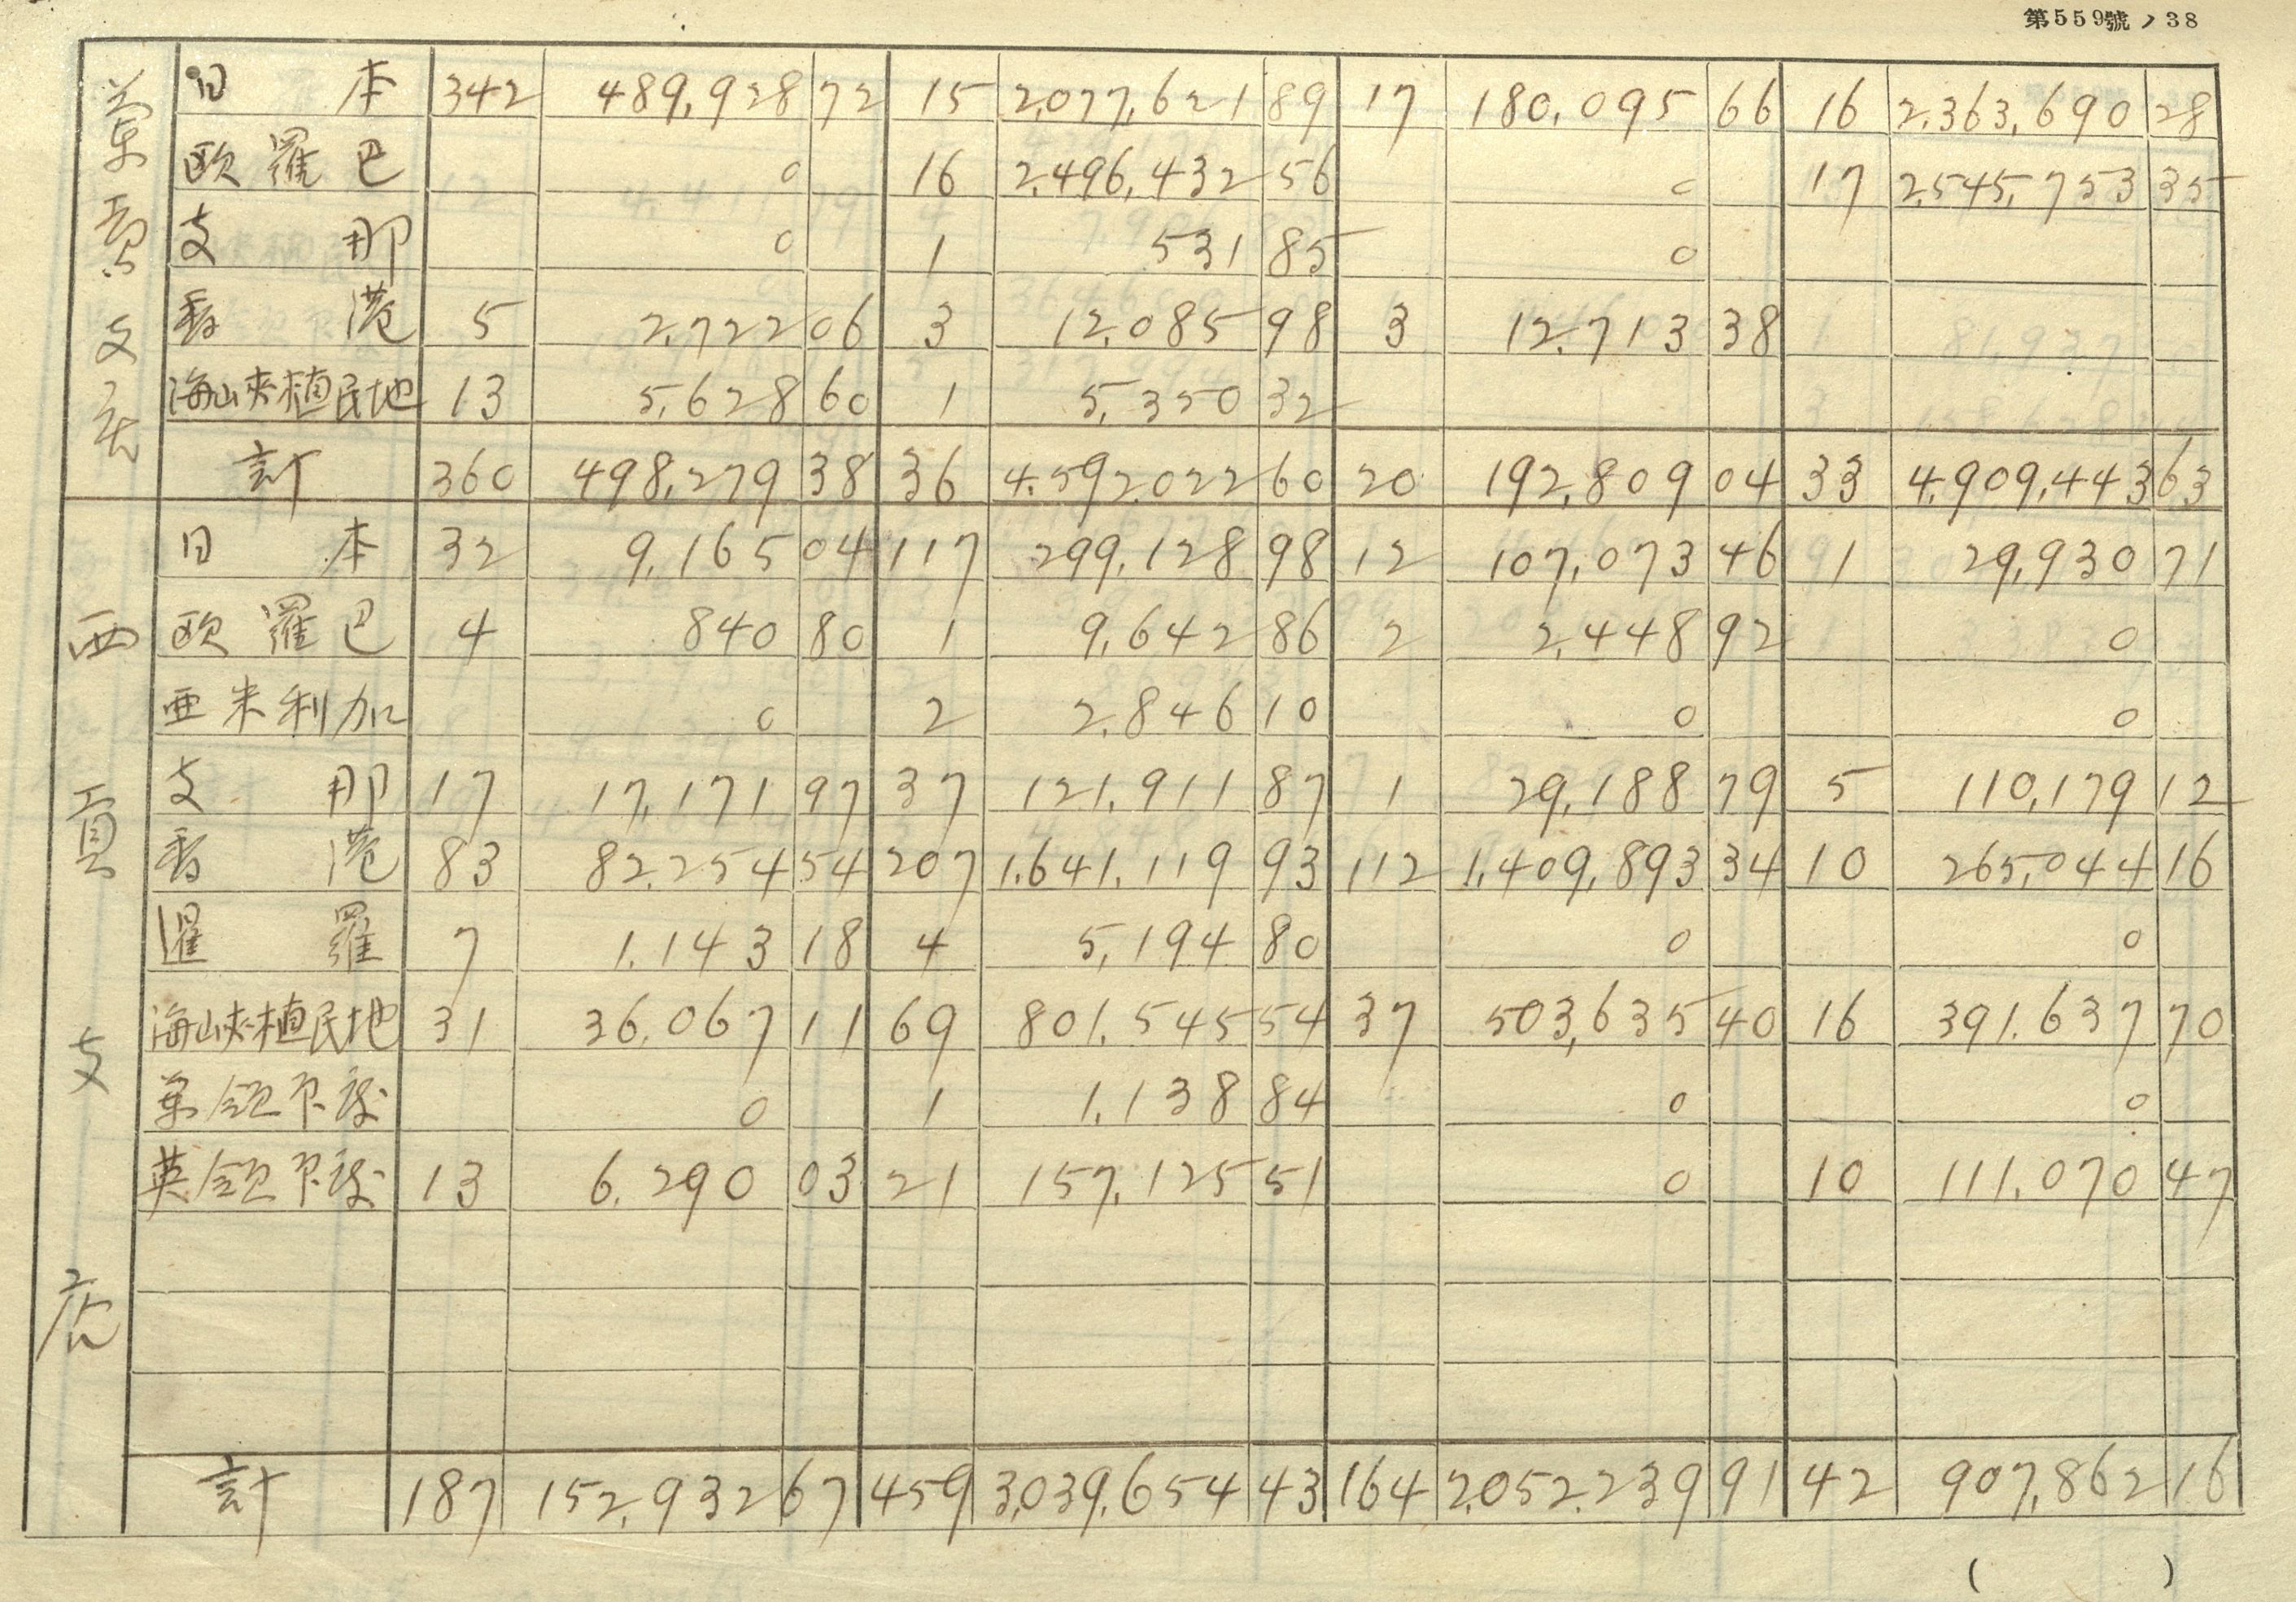 第559號ノ38
蘭貢支店
日本 342 489,928 72 15 2,077,621 89 17 180,095 66 16 2,363,690 28
欧羅巴 0 16 2,496,432 56 0 17 2,545,753 35
支那 0 1 531 85 0
香港 5 2,722 06 3 12,085 98 3 12,713 38
海峡植民地 13 5,628 60 1 5,350 32
計 360 498,279 38 36 4,592,022 60 20 192,809 04 33 4,909,443 63
西貢支店
日本 32 9,165 04 117 299,128 98 12 107,073 46 1 29,930 71
欧羅巴 4 840 80 1 9,642 86 2 2,448 92 0
亜米利加 0 2 2,846 10 0 0
支那 17 17,171 97 37 121,911 87 1 29,188 79 5 110,179 12
香港 83 82,254 54 207 1,641,119 93 112 1,409,893 34 10 265,044 16
暹羅 7 1,143 18 4 5,194 80 0 0
海峡植民地 31 36,067 11 69 801,545 54 37 503,635 40 16 391,637 70
蘭領印度 0 1 1,138 84 0 0
英領印度 13 6,290 03 21 157,125 51 0 10 111,070 47
計 187 152,932 67 459 3,039,654 43 164 2,052,239 91 42 907,862 16
( )